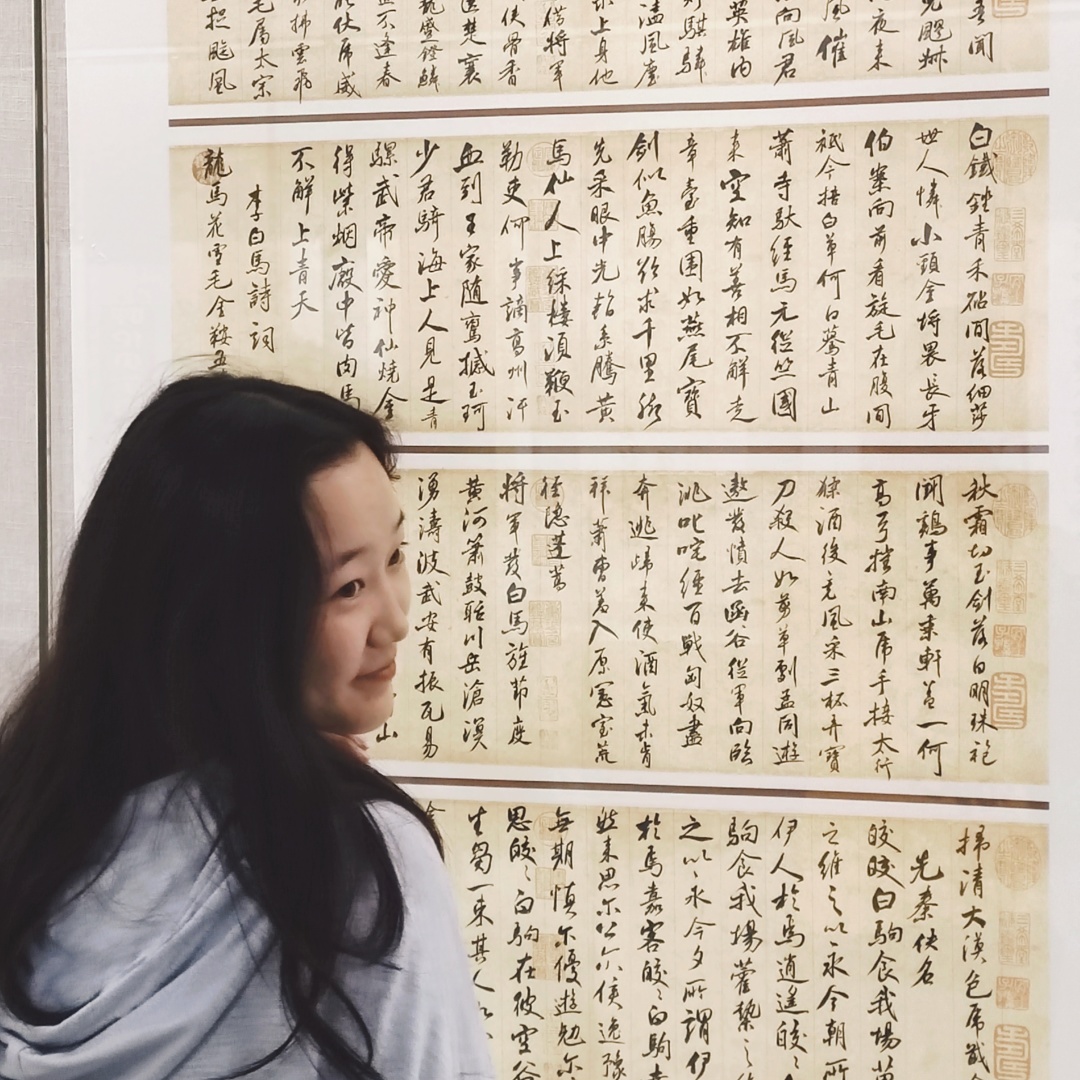 聞
夜來
風催
向風君
英雄內
騏驎
溘風塵
上身他
借將軍
俠骨香
楚襄
龍蹙鐙鱗
不逢春
能伏虎威
拂雲飛
毛屬太宗
捉颷風
白鐵銼青禾砧間落細莎
世人憐小頸金埒畏長牙
伯樂向前看旋毛在腹間
祇今掊白草何日驀青山
蕭寺馱經馬元從竺國
來空知有善相不解走
章臺重圍如燕尾寶
劍似魚腸欲求千里腳
先采眼中光暫系騰黃
馬仙人上綵樓須鞭玉
勒吏何事謫高州汗
血到王家隨鸞撼玉珂
少君騎海上人見是青
騾武帝愛神仙燒金
得紫烟廄中皆肉馬
不解上青天
李白馬詩詞
龍馬花雪毛金鞍五
秋霜切玉劍落日明珠袍
鬭鷄事萬乘軒蓋一何
高弓摧南山虎手接太行
猱酒後競風采三杯弄寶
刀殺人如剪草劇孟同遊
遨發憤去函谷從軍向臨
洮叱咤經百戰匈奴盡
奔逃歸來使酒氣未肯
拜蕭曹羞入原憲室荒
徑隱蓬蒿
將軍發白馬旌節度
黃河簫鼓聒川岳滄溟
湧濤波武安有振瓦易
山
掃清大漠包虎戰
先秦佚名
皎皎白駒食我場苗
之維之以永今朝所
伊人於焉逍遙皎々
駒食我場藿縶之
之以々永今夕所謂伊
於焉嘉客皎々白駒
然來思爾公爾侯逸豫
無期慎爾優遊勉爾
思皎々白駒在彼空谷
生芻一束其人